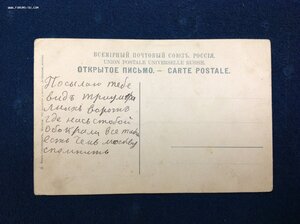 www.forums-su.com
ВСЕМІРНЫЙ ПОЧТОВЫЙ СОЮЗЪ. РОССІЯ.
UNION POSTALE UNIVERSELLE RUSSIE.
ОТКРЫТОЕ ПИСЬМО. — CARTE POSTALE.
Посылаю тебѣ
видъ триумфа
льныхъ воротъ
где насъ с тобой
обокрали все таки
есть чемъ москву
спомнить